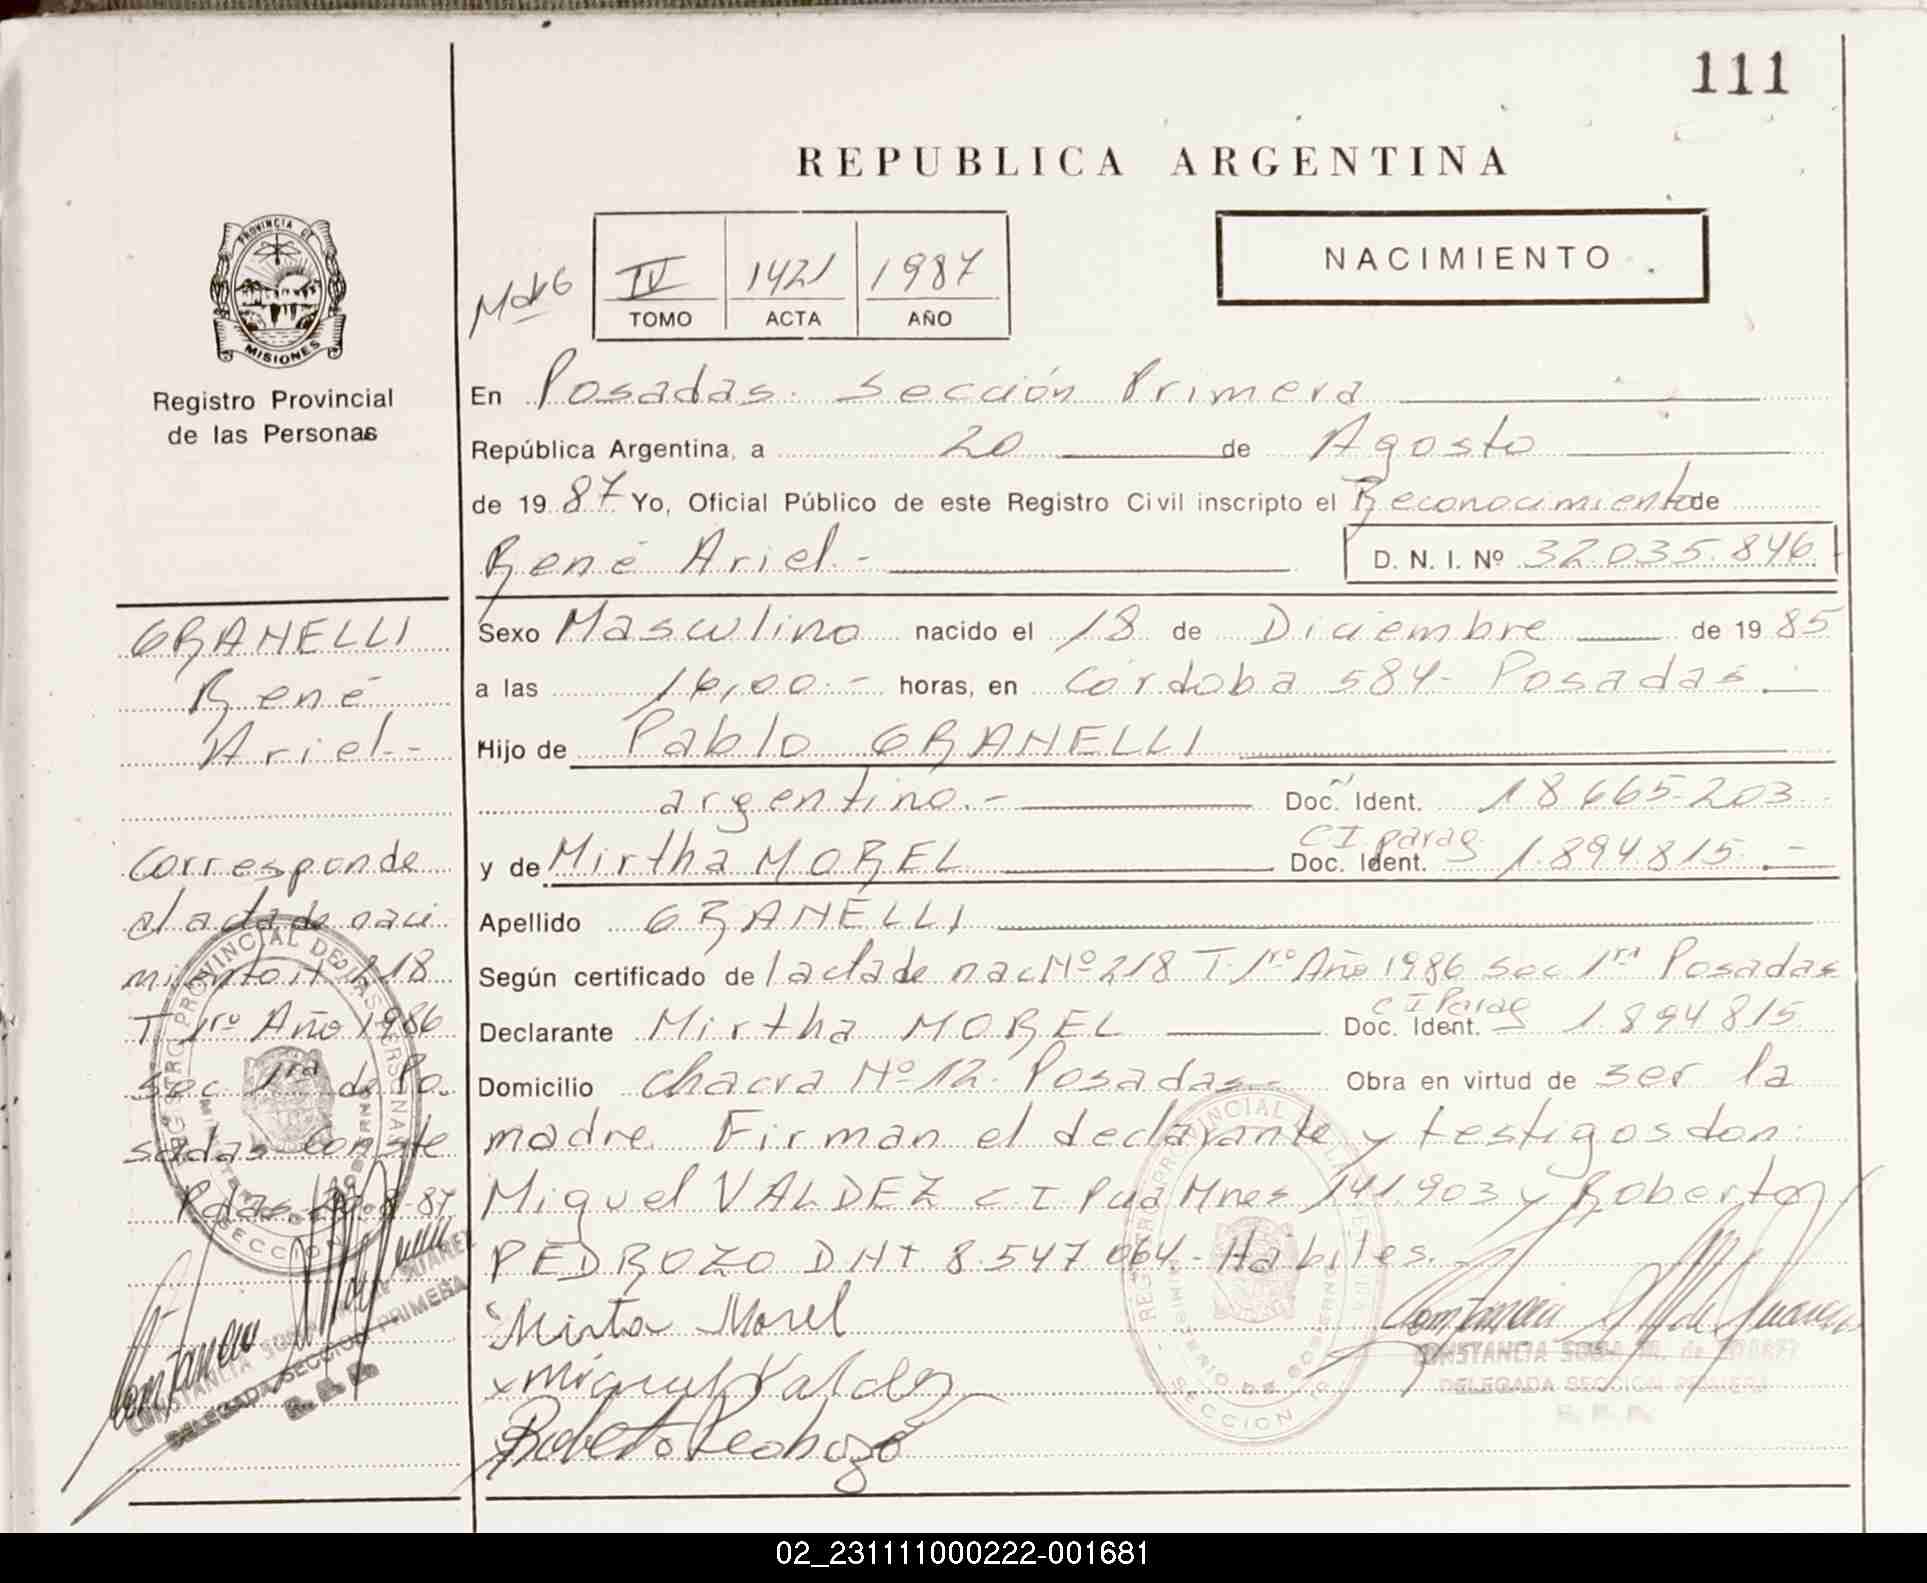 111
REPUBLICA ARGENTINA
PROVINCIA DE
MISIONES
Registro Provincial
de las Personas
IV 1421 1987
TOMO ACTA AÑO
NACIMIENTO
En Posadas. Sección Primera
República Argentina, a 20 de Agosto
de 19 87 Yo, Oficial Público de este Registro Civil inscripto el Reconocimiento de
René Ariel.-
D. N. I. Nº 32.035.846
GRANELLI
René
Ariel.-
Sexo Masculino nacido el 18 de Diciembre de 19 85
a las 16,00.- horas, en Córdoba 584- Posadas.-
Hijo de Pablo GRANELLI
argentino.- Doc. Ident. 18.665.203
CI parag
y de Mirtha MOREL Doc. Ident. 1.894.815.-
Apellido GRANELLI
Según certificado de l acta de nac Nº 218 T. 1ro Año 1986 sec 1ra Posadas
CI Parag
Declarante Mirtha MOREL Doc. Ident. 1.894815
Domicilio chacra Nº 12. Posadas.- Obra en virtud de ser la
madre. Firman el declarante y testigos don:
Miguel VALDEZ C I Mnes 141.903 y Roberto
PEDROZO D N I 8.547.064.- Hábiles.
Corresponde
al acta de naci
miento 218
T 1ro Año 1986
sec 1ra de Po.
sadas conste
Pdas. 20-8-87
Mirta Morel
x Miguel Valdez
Roberto Pedrozo
CONSTANCIA SOSA M. de SUAREZ
DELEGADA SECCION PRIMERA
R. P. P.
CONSTANCIA SOSA M. de SUAREZ
DELEGADA SECCION PRIMERA
R. P. P.
02_231111000222-001681